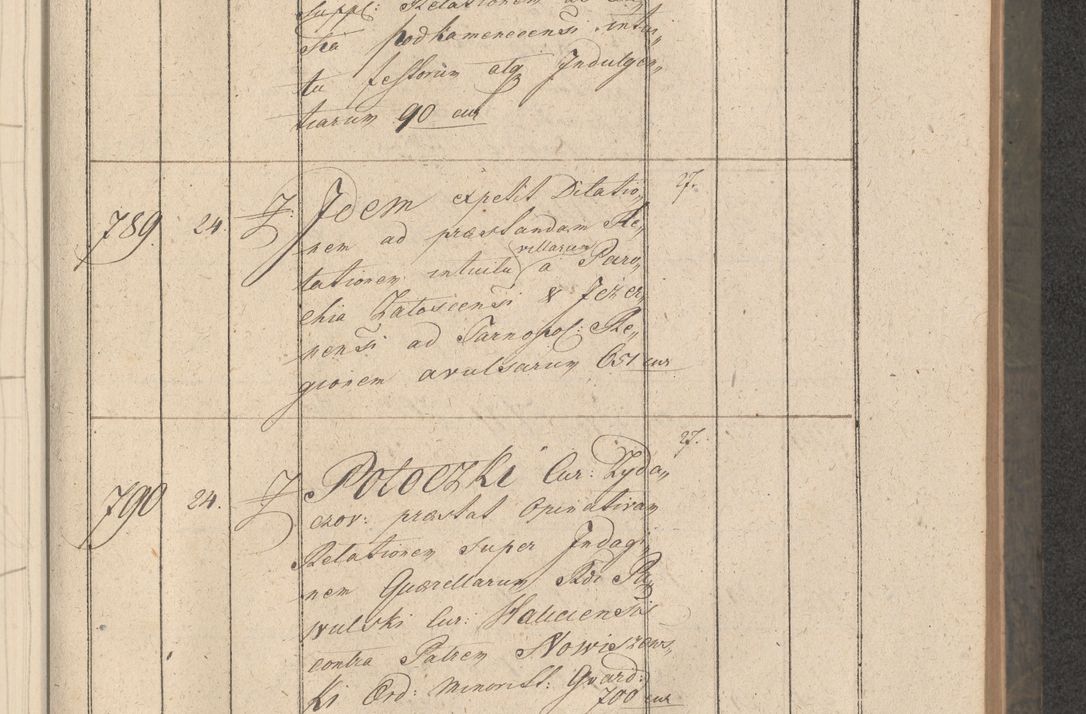 Suppl: Relationem ad
sia podkamenecensi intui„
tu festorum atq Indulgen„
tiarum 90 cur
789. 24. Z. Idem expetit Dilatio„ 27.
nem ad præstandam Re„
tationem intuitu villarum a Paro„
chia Zalosicensi & Jezer„
nensi ad Tarnopol: Re„
gionem avulsarum 651 cur
790 24. Z Potoczki Cur: Zyda„ 27.
czov: præstat Opinativam
Relationem super Indagi„
nem Quærellarum Rdi Pa„
wulski Cur: Haliciensis
contra Patrem Nowiszews„
ki Ord: Minorist: Gvard:
700 cur